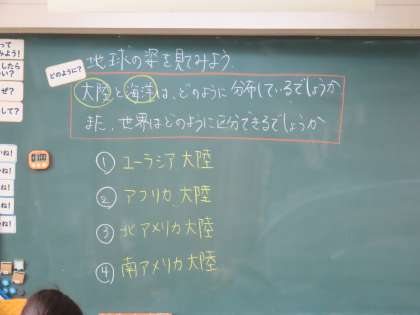 地球の姿を見てみよう
どのように?
大陸と海洋は、どのように分布しているでしょうか
また、世界はどのように区分できるでしょうか
① ユーラシア大陸
② アフリカ大陸
③ 北アメリカ大陸
④ 南アメリカ大陸